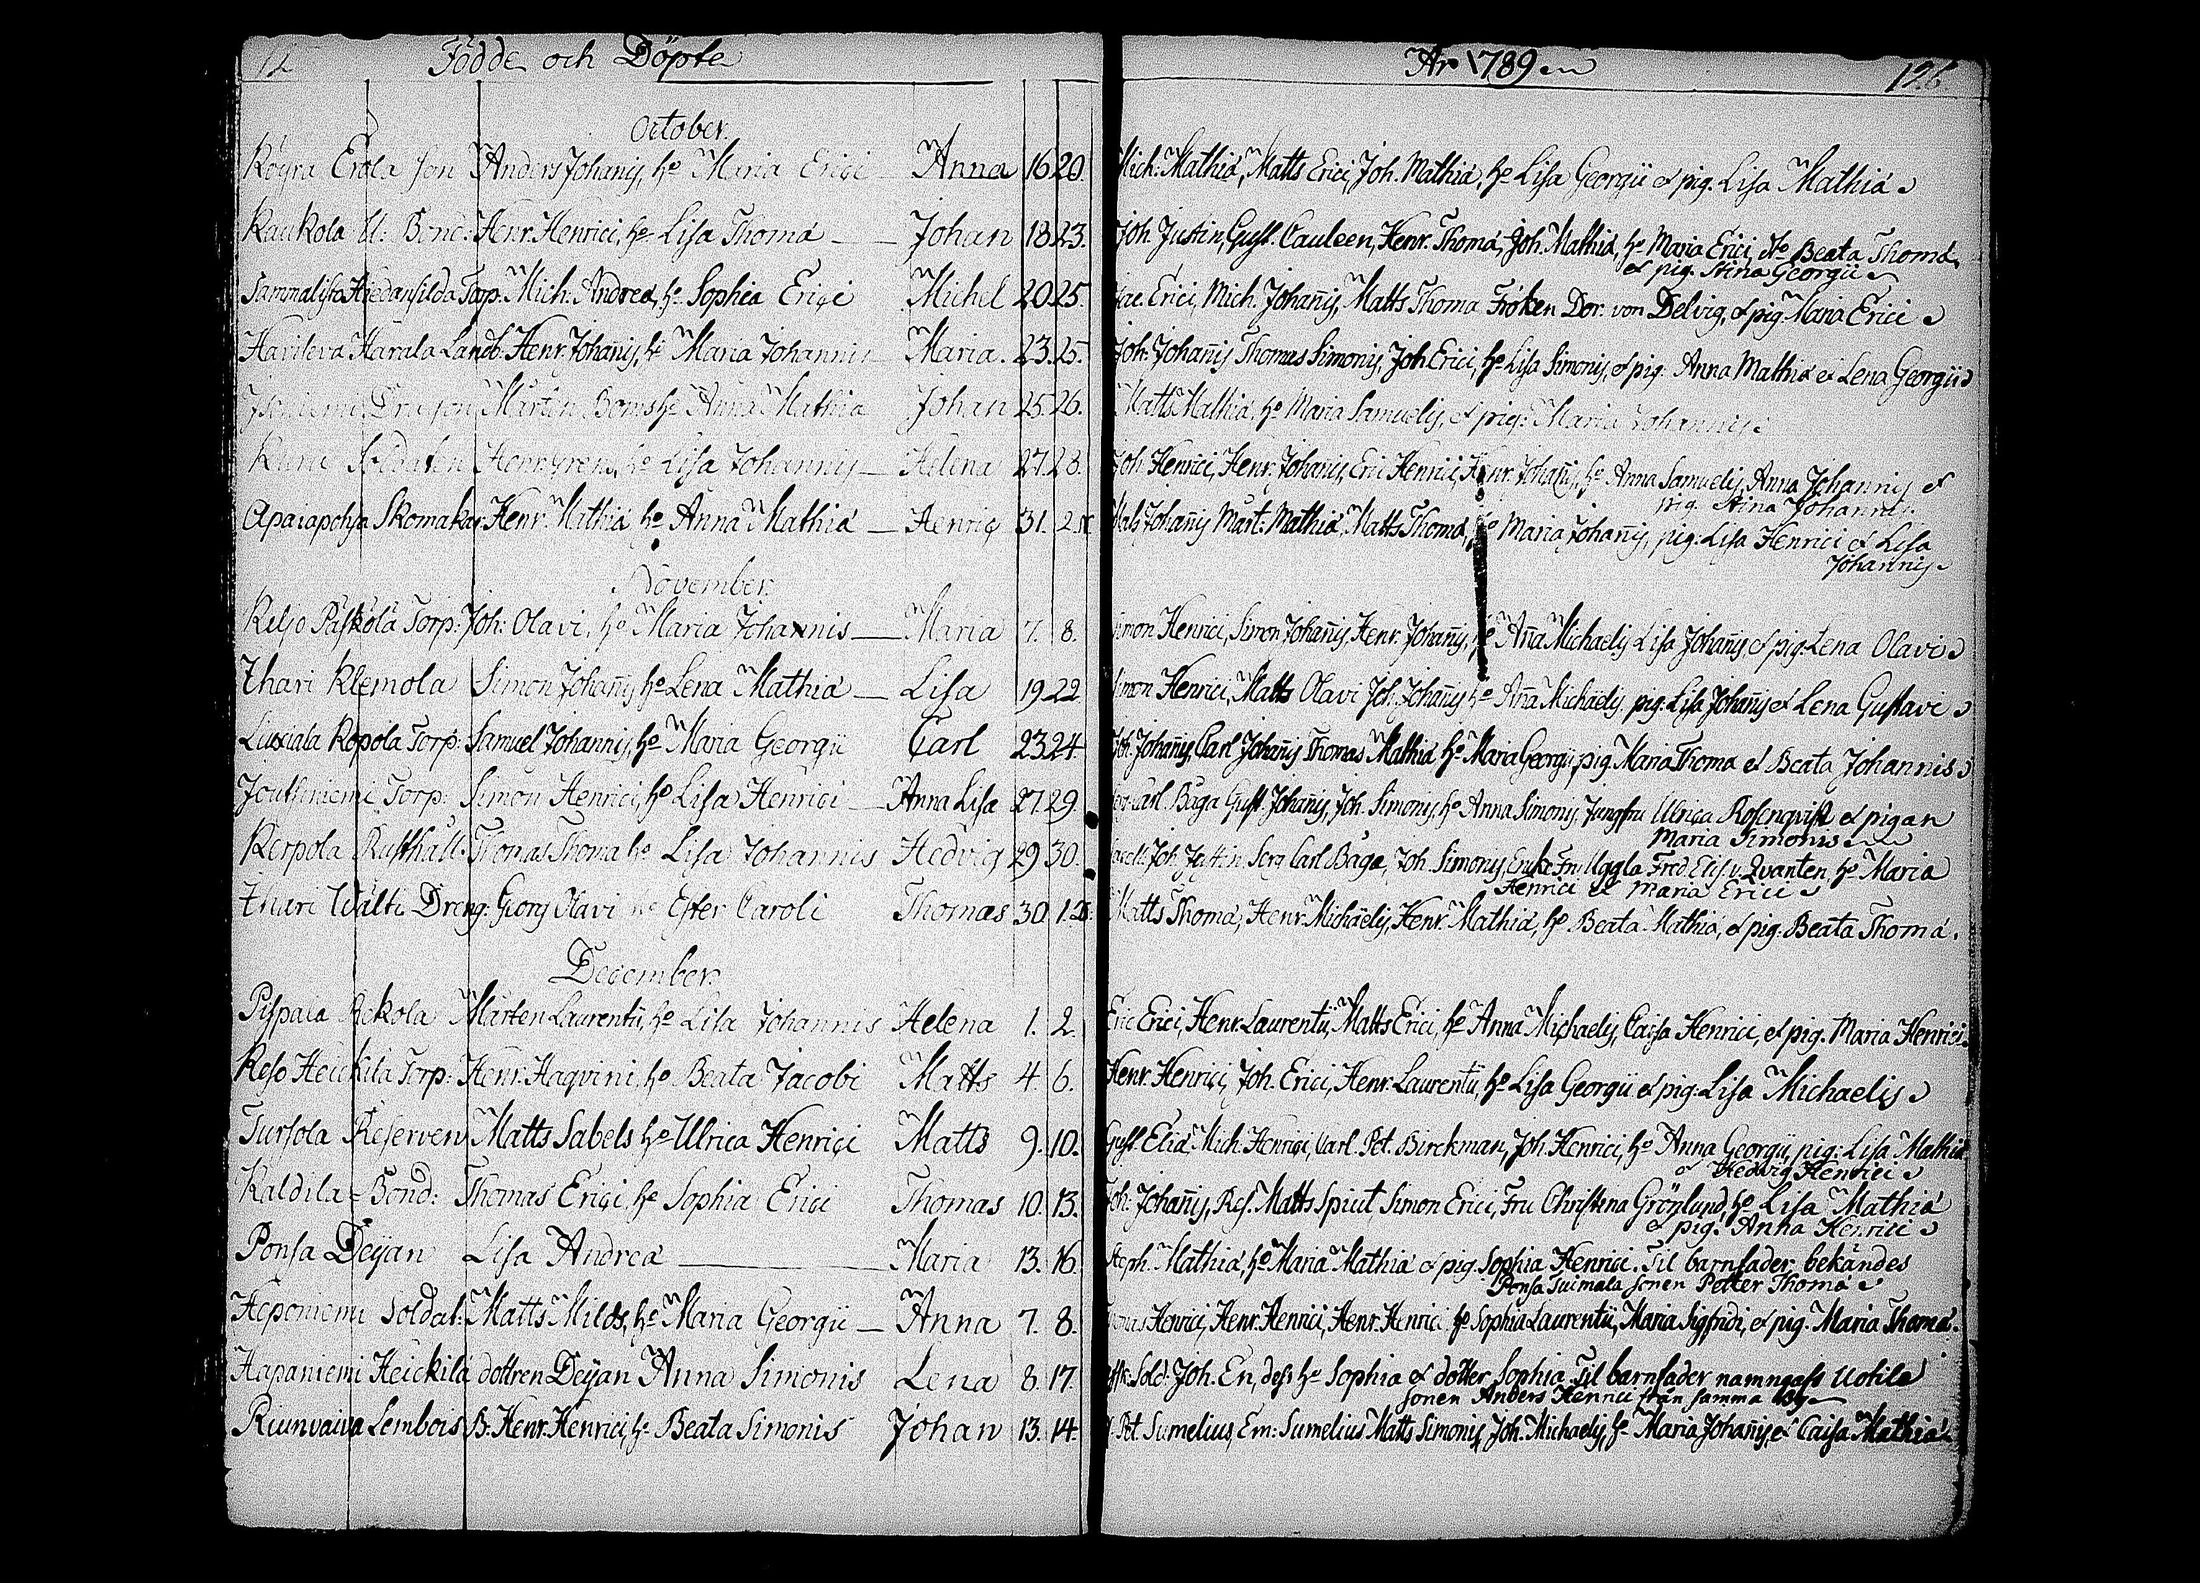 Födde och Döpte
October.
Röyra Erola Son Anders Johanis, ho Maria Erici — Anna 16 20.
Kaukola U: Bond: Henr. Henrici, ho Lisa Thomæ — Johan 18 23.
Sammalisto Torp. Mich. Andreæ, ho Sophia Erici Michel 20 25.
Havileva Härälä Landb: Henr. Johanis, ho Maria Johannis Maria. 23. 25.
Dragon Mårten Boms ho Anna Mathiæ Johan 25. 26.
Soldaten ho Lisa Johannis — Helena 27. 28.
Apaiapohja Skomakar Henr. Mathiæ ho Anna Mathiæ — Henric 31. 2.
November.
Keljo Päskölä Torp: Joh: Olavi, ho Maria Johannis — Maria 7. 8.
Ihari Klemola Simon Johanis ho Lena Mathiæ — Lisa 19 22
Liuxiala Ropola Torp: Samuel Johannis, ho Maria Georgii Carl 23 24
Joutsiniemi Torp: Simon Henrici, ho Lisa Henrici — Anna Lisa 27. 29.
Kerpola Rusthåll: Thomas Thomæ ho Lisa Johannis Hedvig 29 30.
Ihari Wälti Dreng: Georg Olavi ho Ester Caroli Thomas 30. 1.
December.
Pispala Mårten Laurentii, ho Lisa Johannis Helena 1. 2.
Reso Heickilä Torp: Henr. Haqvini, ho Beata Jacobi Matts 4. 6.
Tursola Reserven Matts Sabels ho Ulrica Henrici Matts 9. 10.
Kaldila Bond: Thomas Erici, ho Sophia Erici Thomas 10. 13.
Ponsa Deijan Lisa Andreæ — Maria 13. 16.
Heponiemi Soldat: Matts Milds, ho Maria Georgii — Anna 7. 8.
Hapaniemi Heickilä dottren Deijan Anna Simonis Lena 8. 17.
Riunvaiva Lembois B: Henr. Henrici, ho Beata Simonis Johan 13. 14.
År 1789
126.
Mich: Mathiæ, Matts Erici, Joh. Mathiæ, ho Lisa Georgii et pig. Lisa Mathiæ
Joh. Justin, Gust. Cauleen, Henr. Thomæ, Joh. Mathiæ, ho Maria Erici, Beata Thomæ,
et pig. Stina Georgii
Erici, Mich. Johanis, Matts Thomæ Fröken Dor. von Delvig, et pig. Maria Erici
Joh: Johanis Thomas Simonis, Joh Erici, ho Lisa Simonis, et pig: Anna Mathiæ et Lena Georgii
Matts Mathiæ, ho Maria Samuelis, et pig: Maria Johannis
Joh. Henrici, Henr. Johanis, Eric Henrici, Henr. Johanis, ho Anna Samuelis, Anna Johannis et
pig. Stina Johannis
Johanis Mart: Mathiæ, Matts Thomæ, ho Maria Johanis, pig: Lisa Henrici et Lisa
Johannis
Simon Henrici, Simon Johanis, Henr. Johanis, ho Aña Michaelis Lisa Johanis et pig. Lena Olavi
Simon Henrici, Matts Olavi Joh. Johanis ho Aña Michaelis, pig: Lisa Johanis et Lena Gustavi
Joh. Johanis, Carl Johanis Thomas Mathiæ ho Maria Georgii pig Maria Thomæ et Beata Johannis
Carl Båga Gust. Johanis, Joh. Simonis, ho Anna Simonis, Jungfru Ulrica Rosenqvist et pigan
Maria Simonis
Joh. Justin Serg Carl Båga, Joh. Simonis, Enke Fru Uggla Fred. Elis. v. Qvanten, ho Maria
Henrici et Maria Erici
Matts Thomæ, Henr. Michaelis, Henr. Mathiæ, ho Beata Mathiæ, et pig. Beata Thomæ.
Eric Erici, Henr. Laurentii, Matts Erici, ho Anna Michaelis, Caisa Henrici, et pig. Maria Henrici.
Henr. Henrici, Joh. Erici, Henr. Laurentii, ho Lisa Georgii et pig: Lisa Michaelis
Gust. Eliæ Mich. Henrici, Carl. Pet. Birckman, Joh. Henrici, ho Anna Georgii, pig: Lisa Mathiæ
et Hedvig Henrici
Joh: Johanis, Res. Matts Spiut, Simon Erici, Fru Christina Grönlund, ho Lisa Mathiæ
et pig. Anna Henrici
Steph. Mathiæ, ho Maria Mathiæ et pig. Sophia Henrici. Til barnfader bekändes
Ponsa Tuimala Sonen Petter Thomæ
Thomas Henrici, Henr. Henrici, Henr. Henrici ho Sophia Laurentii, Maria Sigfridi, et pig. Maria Thomæ.
Sold: Joh. En, dess ho Sophia et dotter Sophia. Til barnfader namngafs Uotila
Sonen Anders Henrici från samma by
Pet. Sumelius, Em: Sumelius Matts Simonis, Joh. Michaelis, ho Maria Johanis, et Caisa Mathiæ